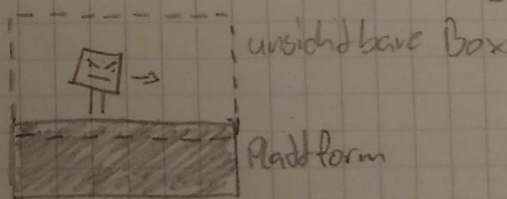 unsichtbare Box
Plattform